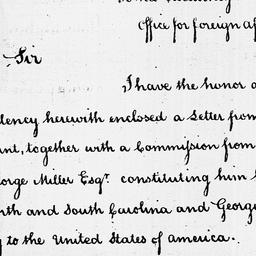 Office for foreign af
Sir
I have the honor o
dency herewith enclosed a Letter from
nt, together with a Commission from
orge Miller Esqr. constituting him
rth and South Carolina and Georg
to the United States of America.